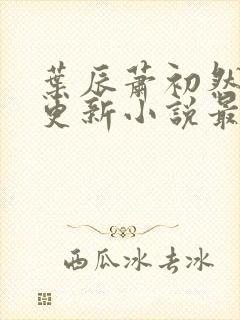 葉辰蕭初然
更新小說最
西瓜冰去冰